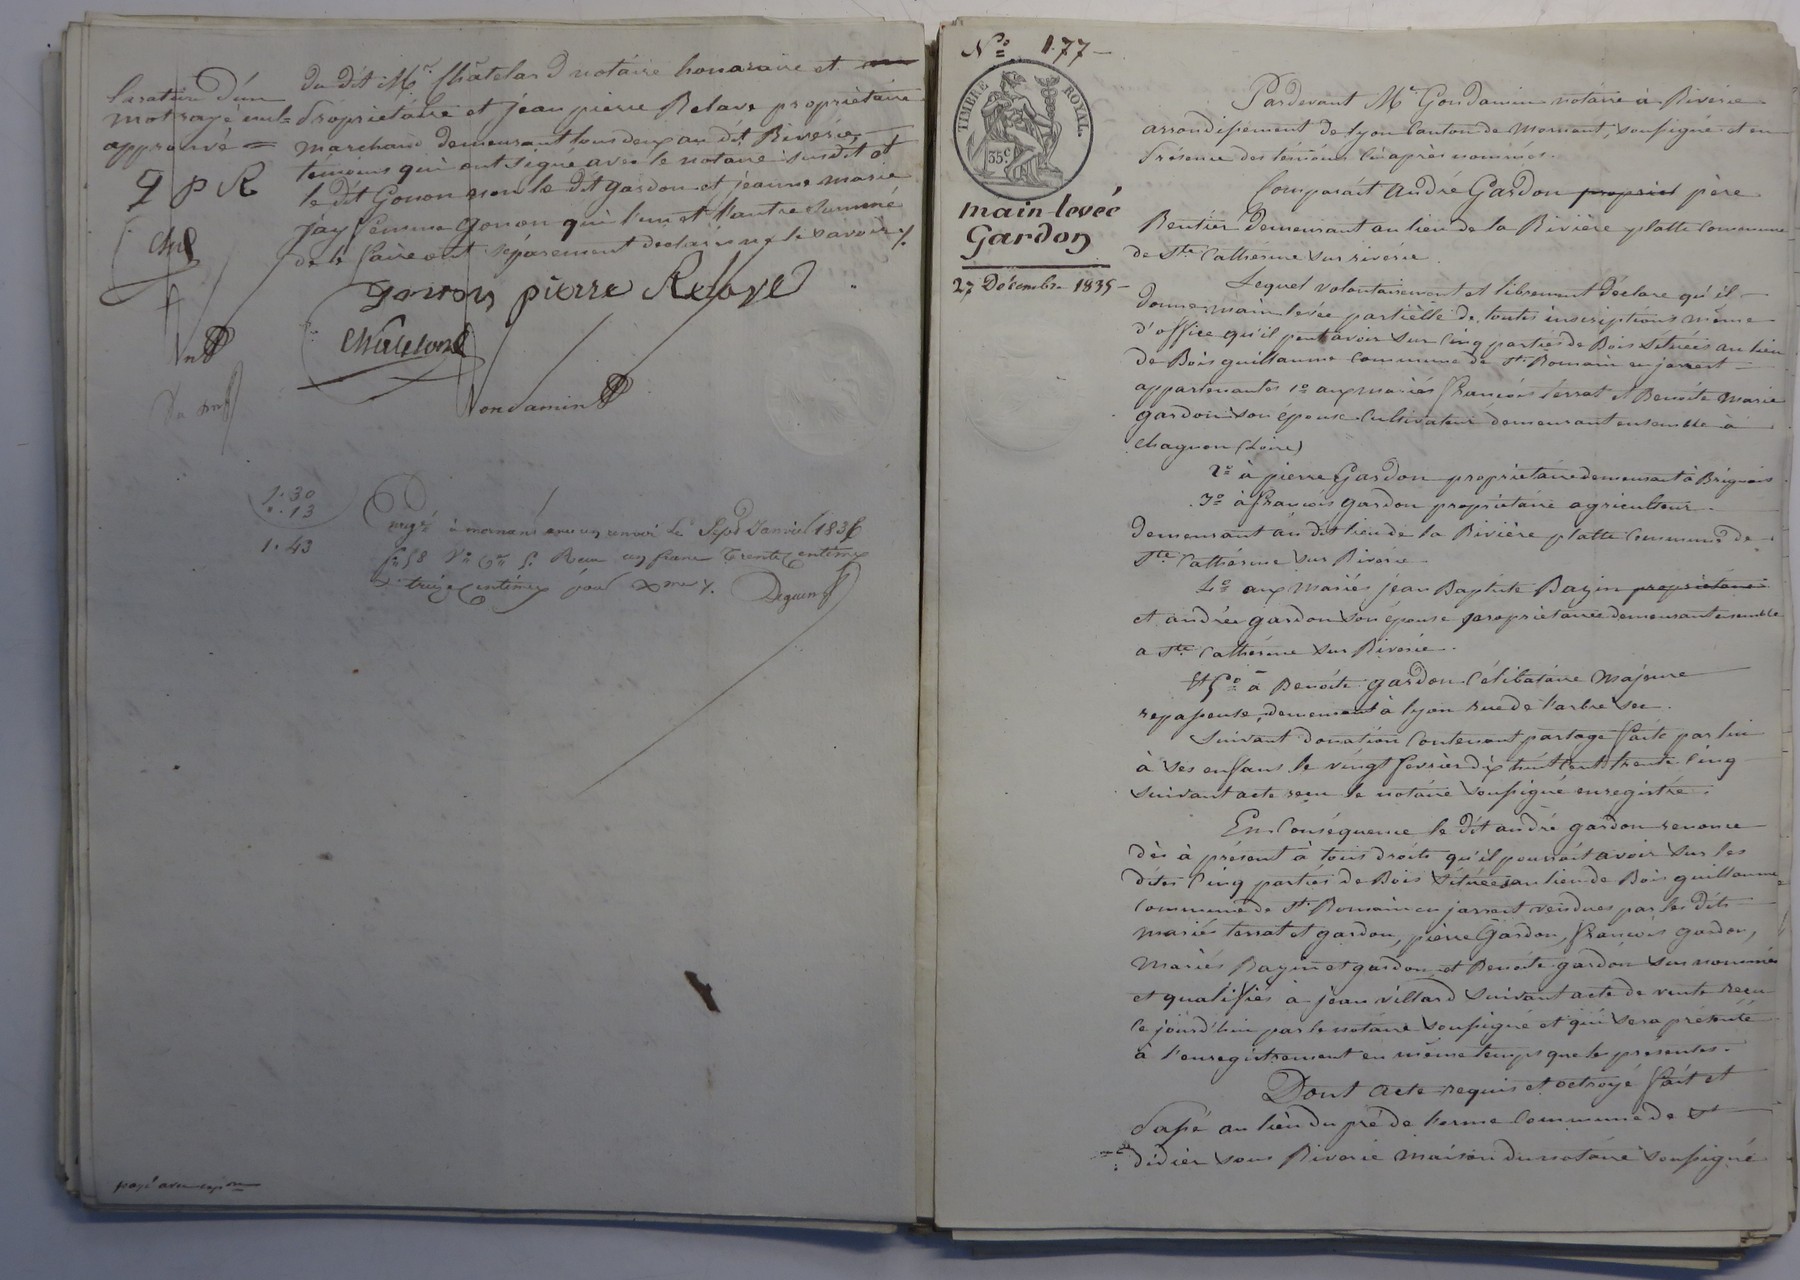 du dit Mr. Châtelard notaire honoraire et
propriétaire et jean pierre Relave propriétaire
marchand demeurant tous deux au dit Riverie
témoins qui ont signé avec le notaire susdit et
le dit Gonon non le dit gardon et jeanne marie
jay femme gonon qui l'un et l'autre sommé
de le faire ont séparément déclaré ne le savoir
la rature d'un
mot rayé nul
approuvé =
J P R
gonon pierre Relave
Chatelard
Gondamin
1. 30
". 13
1. 43
Enregé à mornant avec un renvoi le Sept Janvier 1836
fo 58 Vo Reçu un franc trente centimes
treize centimes pour Xme
payé avec expon
No 177
TIMBRE ROYAL.
35c
main-levée
Gardon
27 Décembre 1835
Pardevant Me Gondamin notaire à Riverie
arrondissement de lyon Canton de Mornant, soussigné et en
présence des témoins ci après nommés.
Comparait andré Gardon propriet père
Rentier demeurant au lieu de la Rivière platte Commune
de Ste Catherine sur riverie.
Lequel volontairement et librement déclare qu'il
donne main levée partielle de toutes inscriptions même
d'office qu'il peut avoir sur Cinq parties de Bois situées au lieu
de Bois guillaume Commune de St Romain en jarrest
appartenantes 1o aux mariés françois terrat et Benoite Marie
gardon son épouse Cultivateur demeurant ensemble à
Chagnon (Loire)
2o à pierre Gardon propriétaire demeurant à Brignais
3o à françois gardon propriétaire agriculteur
demeurant au dit lieu de la Rivière platte Commune de
Ste Catherine sur Riverie
4o aux mariés jean Baptiste Bazin propriétaire
et andrée gardon son épouse propriétaires demeurant ensemble
a Ste Catherine sur Riverie.
Et 5o à Benoite gardon Célibataire Majeure
repasseuse, demeurant à lyon rue de l'arbre sec.
Suivant donation Contenant partage faite par lui
à ses enfans le vingt fevrier dix huit cent trente Cinq
suivant acte reçu le notaire soussigné enregistré.
En Conséquence le dit andré gardon renonce
dès à présent à tous droits qu'il pourrait avoir sur les
dites Cinq parties de Bois situées au lieu de Bois guillaume
Commune de St Romain en jarrest vendues par les dits
mariés terrat et gardon, pierre Gardon, françois gardon,
Mariés Bazin et gardon et Benoite gardon sus nommés
et qualifiés à jean villard suivant acte de vente reçu
Ce jourd'hui par le notaire soussigné et qui sera présenté
à l'enregistrement en même temps que les présentes.
Dont acte requis et octroyé fait et
Passé au lieu du pré de l'orme Commune de St
didier sous Riverie maison du notaire soussigné